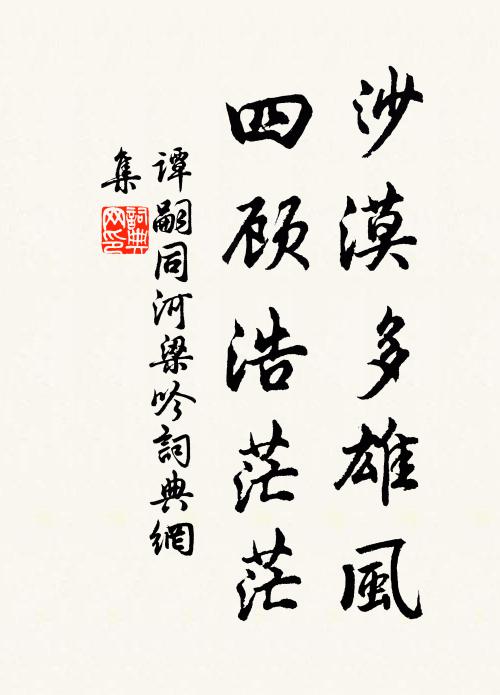 沙漠多雄風
四顾浩茫茫
谭嗣同河梁吟詞典網
集
詞典
网印